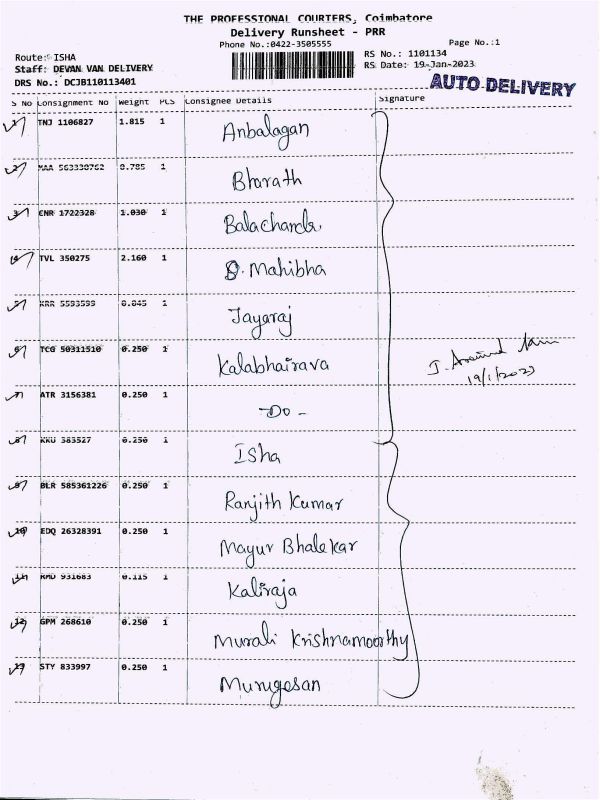 THE PROFESSIONAL COURIERS, Coimbatore
Delivery Runsheet - PRR
Phone No.:0422-3505555
Page No.:1
Route: ISHA
RS No.: 1101134
Staff: DEVAN VAN DELIVERY
RS Date: 19-Jan-2023
DRS No.: DCJB110113401
AUTO DELIVERY
S No Consignment No Weight PCS Consignee Details Signature
1 TNJ 1106827 1.815 1 Anbalagan
2 MAA 563330762 0.785 1 Bharath
3 CNR 1722328 1.030 1 Balachandr.
4 TVL 350275 2.160 1 D. Mahibha
5 KRR 5593599 0.845 1 Jayaraj
6 TCG 50311510 0.250 1 Kalabhairava
19/1/2023
7 ATR 3156381 0.250 1 -Do-
8 KKU 383527 0.250 1 Isha
9 BLR 585361226 0.250 1 Ranjith Kumar
10 EDQ 26328391 0.250 1 Mayur Bhalekar
11 RMD 931683 0.115 1 Kaliraja
12 GPM 268610 0.250 1 Murali Krishnamoorthy
13 STY 833997 0.250 1 Murugesan